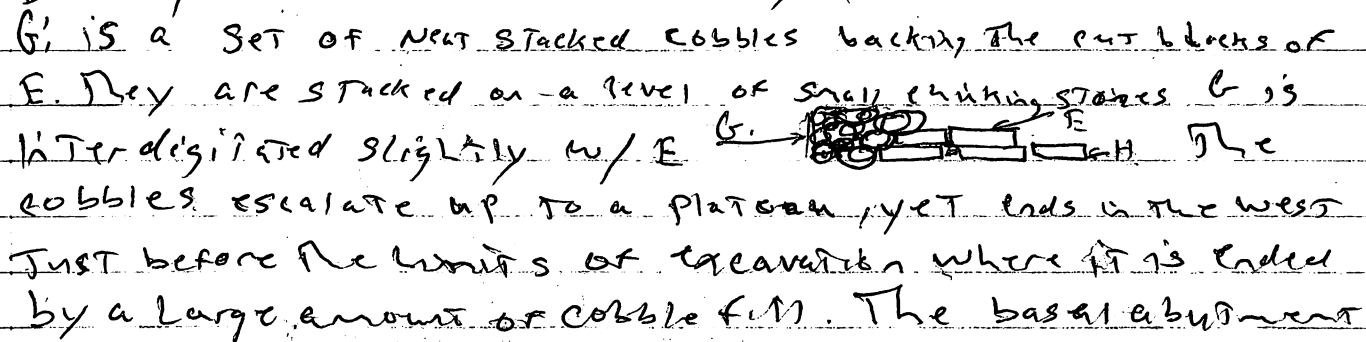 G, is a set of neat stacked cobbles backing the cut blocks of
E. They are stacked on a level of small chinking stones G is
interdigitated slightly w/ E G. E H The
cobbles escalate up to a plateau, yet ends in the west
Just before the limits of excavation where it is ended
by a large amount of cobble fill. The basal abutment